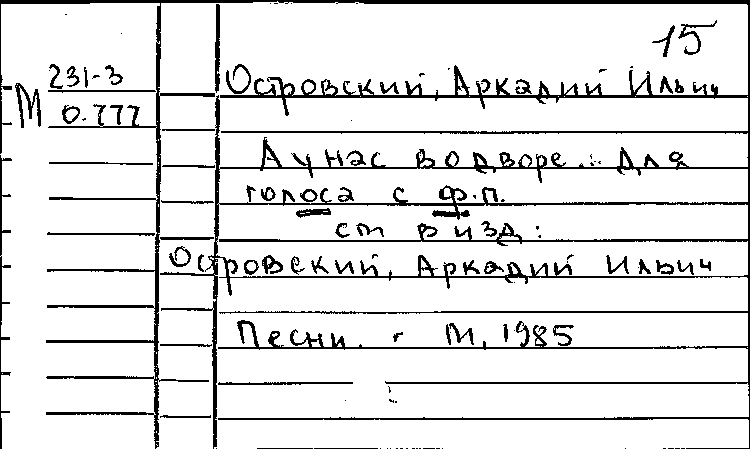 15
М 231-3
0.777
Островский, Аркадий Ильич
А у нас во дворе... Для
голоса с ф.п.
см в изд:
Островский, Аркадий Ильич
Песни. - М, 1985